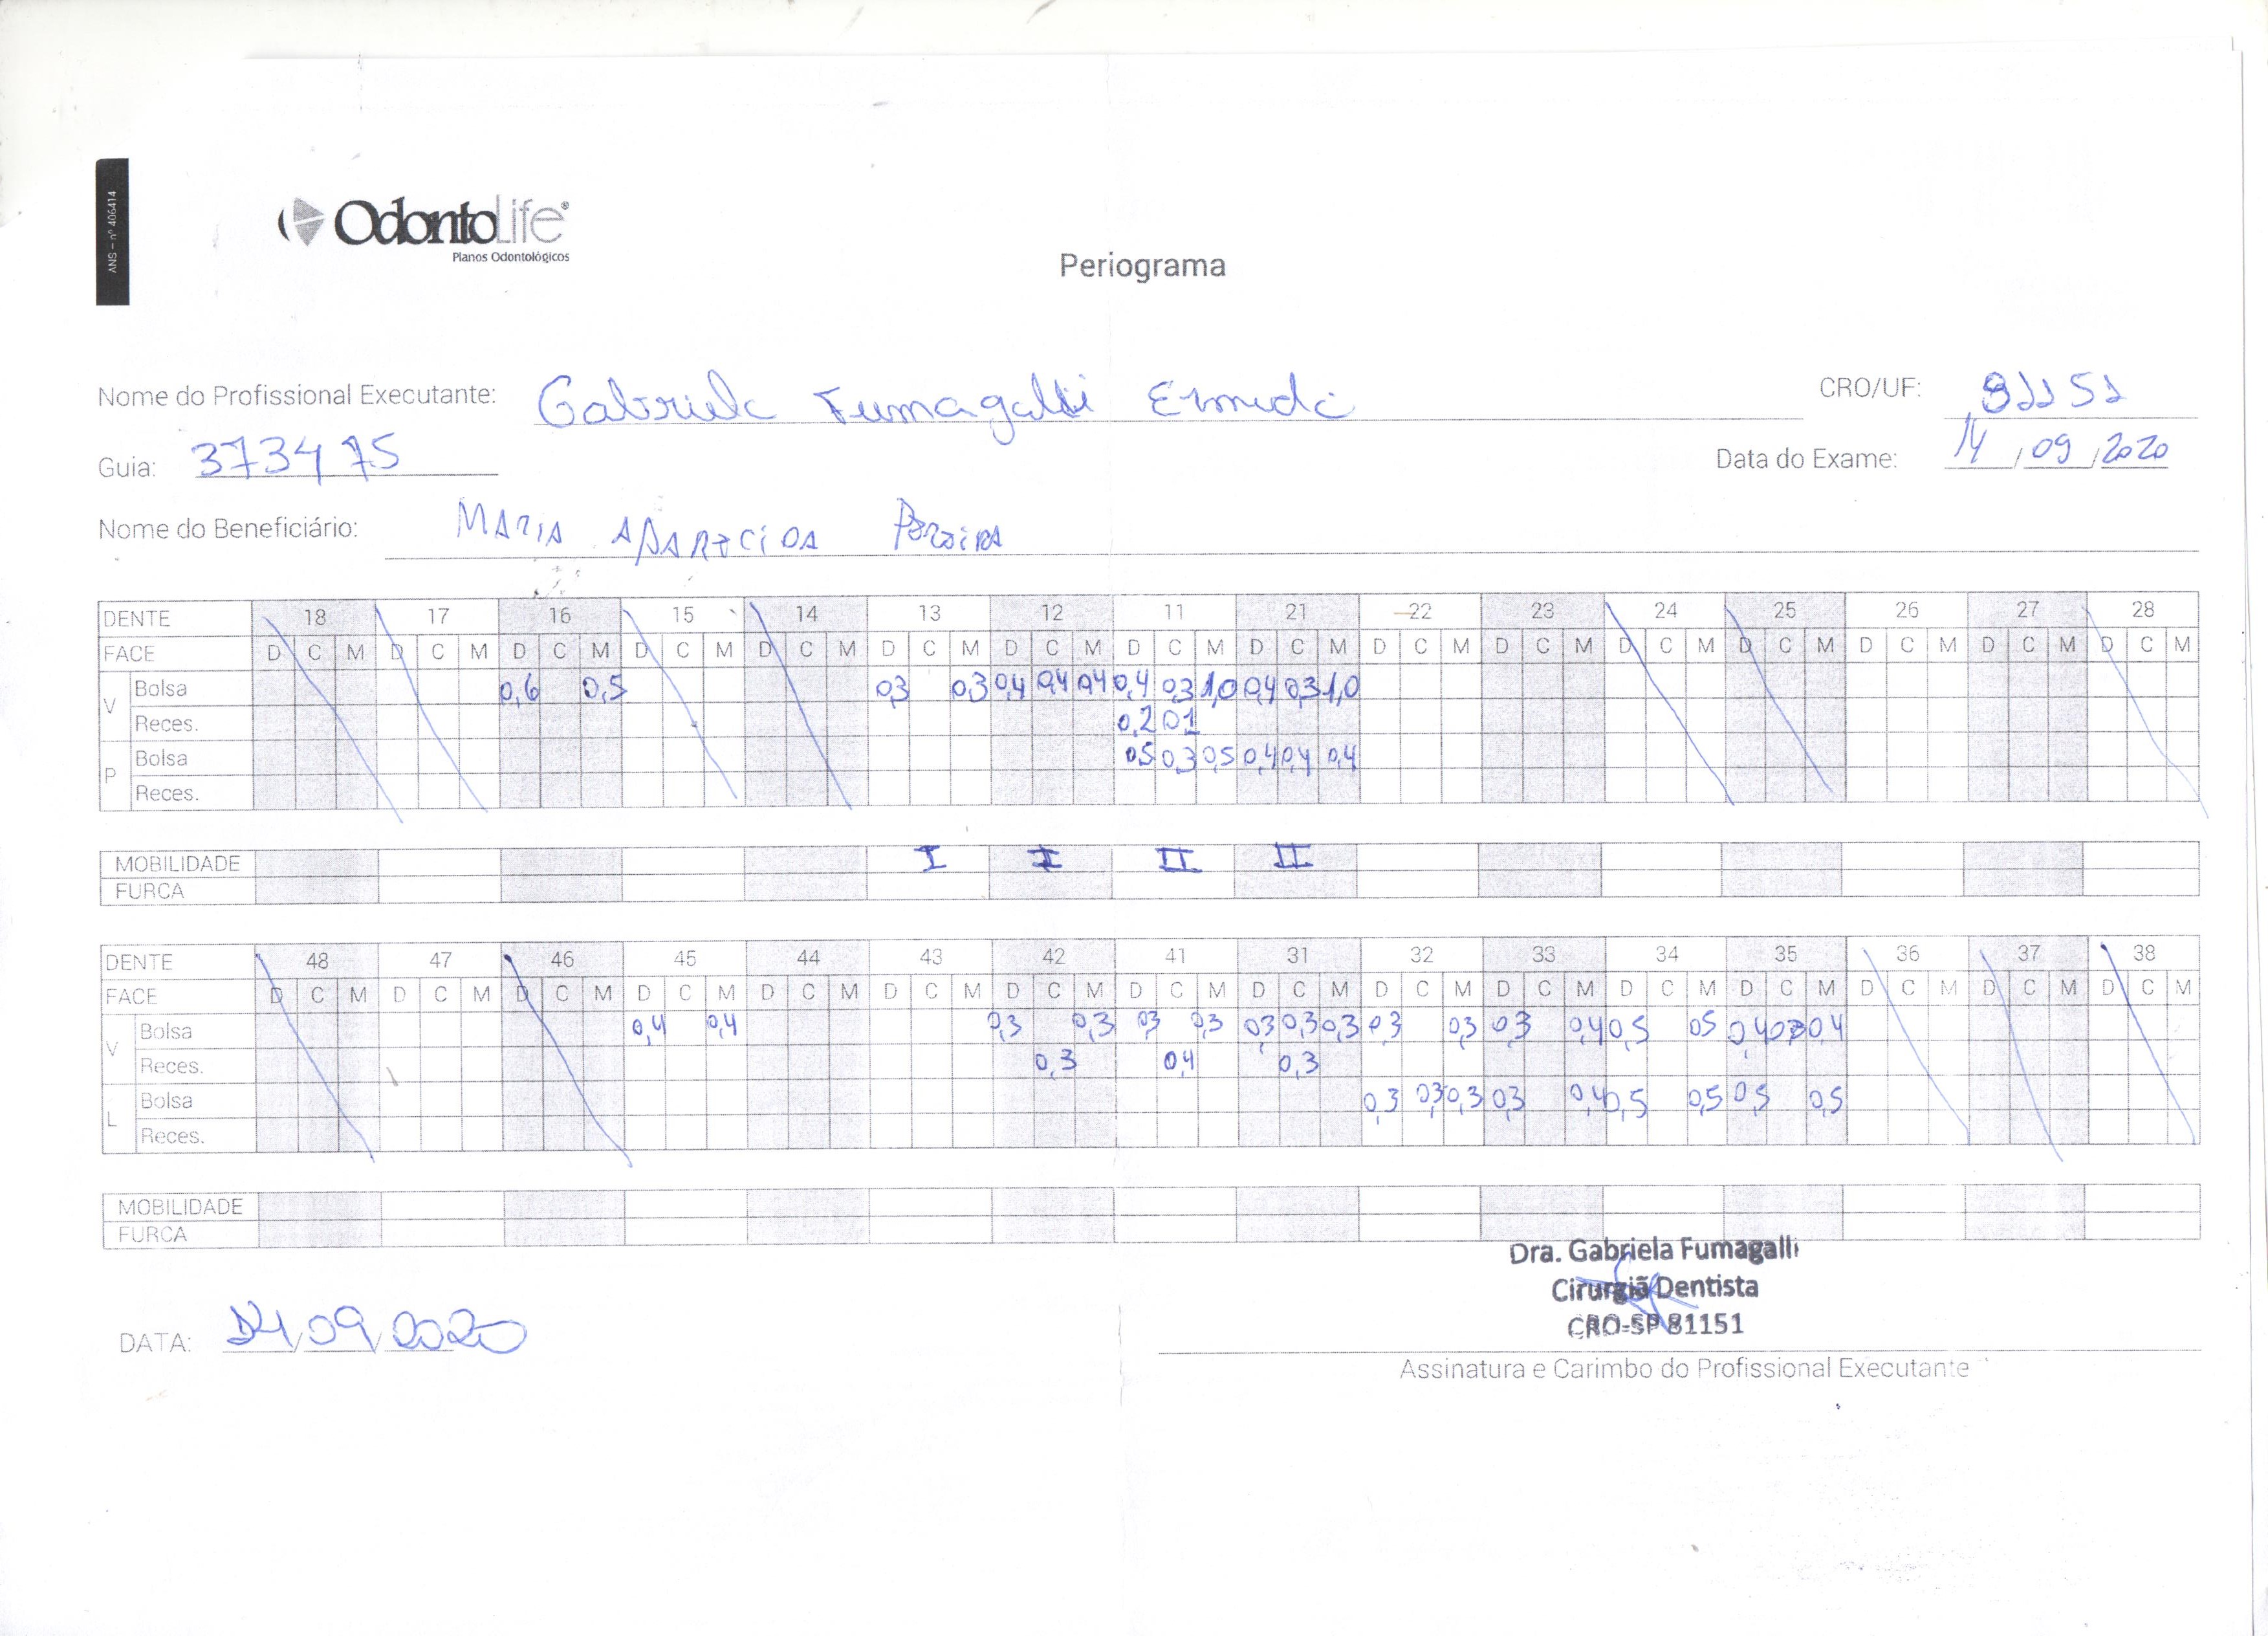 ANS – nº 406414
OdontoLife®
Planos Odontológicos
Periograma
Nome do Profissional Executante: Gabriela Fumagalli Ermida CRO/UF: 81151
Guia: 373475 Data do Exame: 14/09/2020
Nome do Beneficiário: MARIA APARECIDA Pereira
DENTE 18 17 16 15 14 13 12 11 21 22 23 24 25 26 27 28
FACE D C M D C M D C M D C M D C M D C M D C M D C M D C M D C M D C M D C M D C M D C M D C M D C M
V Bolsa 0,6 0,5 0,3 0,3 0,4 0,4 0,4 0,4 0,3 1,0 0,4 0,3 1,0
Reces. 0,2 01
P Bolsa 05 0,3 0,5 0,4 0,4 0,4
Reces.
MOBILIDADE I I II II
FURCA
DENTE 48 47 46 45 44 43 42 41 31 32 33 34 35 36 37 38
FACE D C M D C M D C M D C M D C M D C M D C M D C M D C M D C M D C M D C M D C M D C M D C M D C M
V Bolsa 0,4 0,4 0,3 0,3 03 0,3 03 0,3 0,3 03 0,3 03 0,4 0,5 05 0,4 0,4
Reces. 0,3 04 0,3
L Bolsa 0,3 03 0,3 03 0,4 0,5 0,5 05 0,5
Reces.
MOBILIDADE
FURCA
Dra. Gabriela Fumagalli
Cirurgiã Dentista
CRO-SP 81151
DATA: 14/09/2020
Assinatura e Carimbo do Profissional Executante